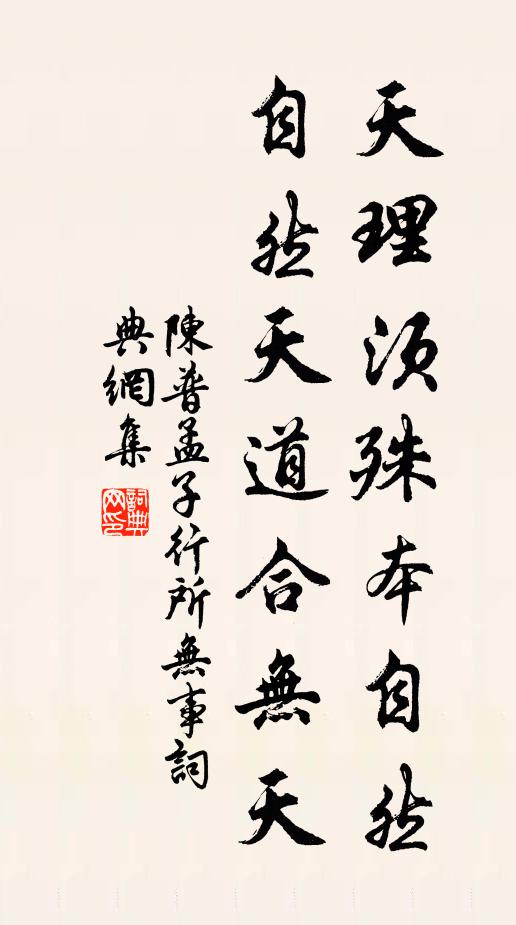 天理須殊本自然
自然天道合無天
陳普孟子行所無事詞
典網集
詞典網印